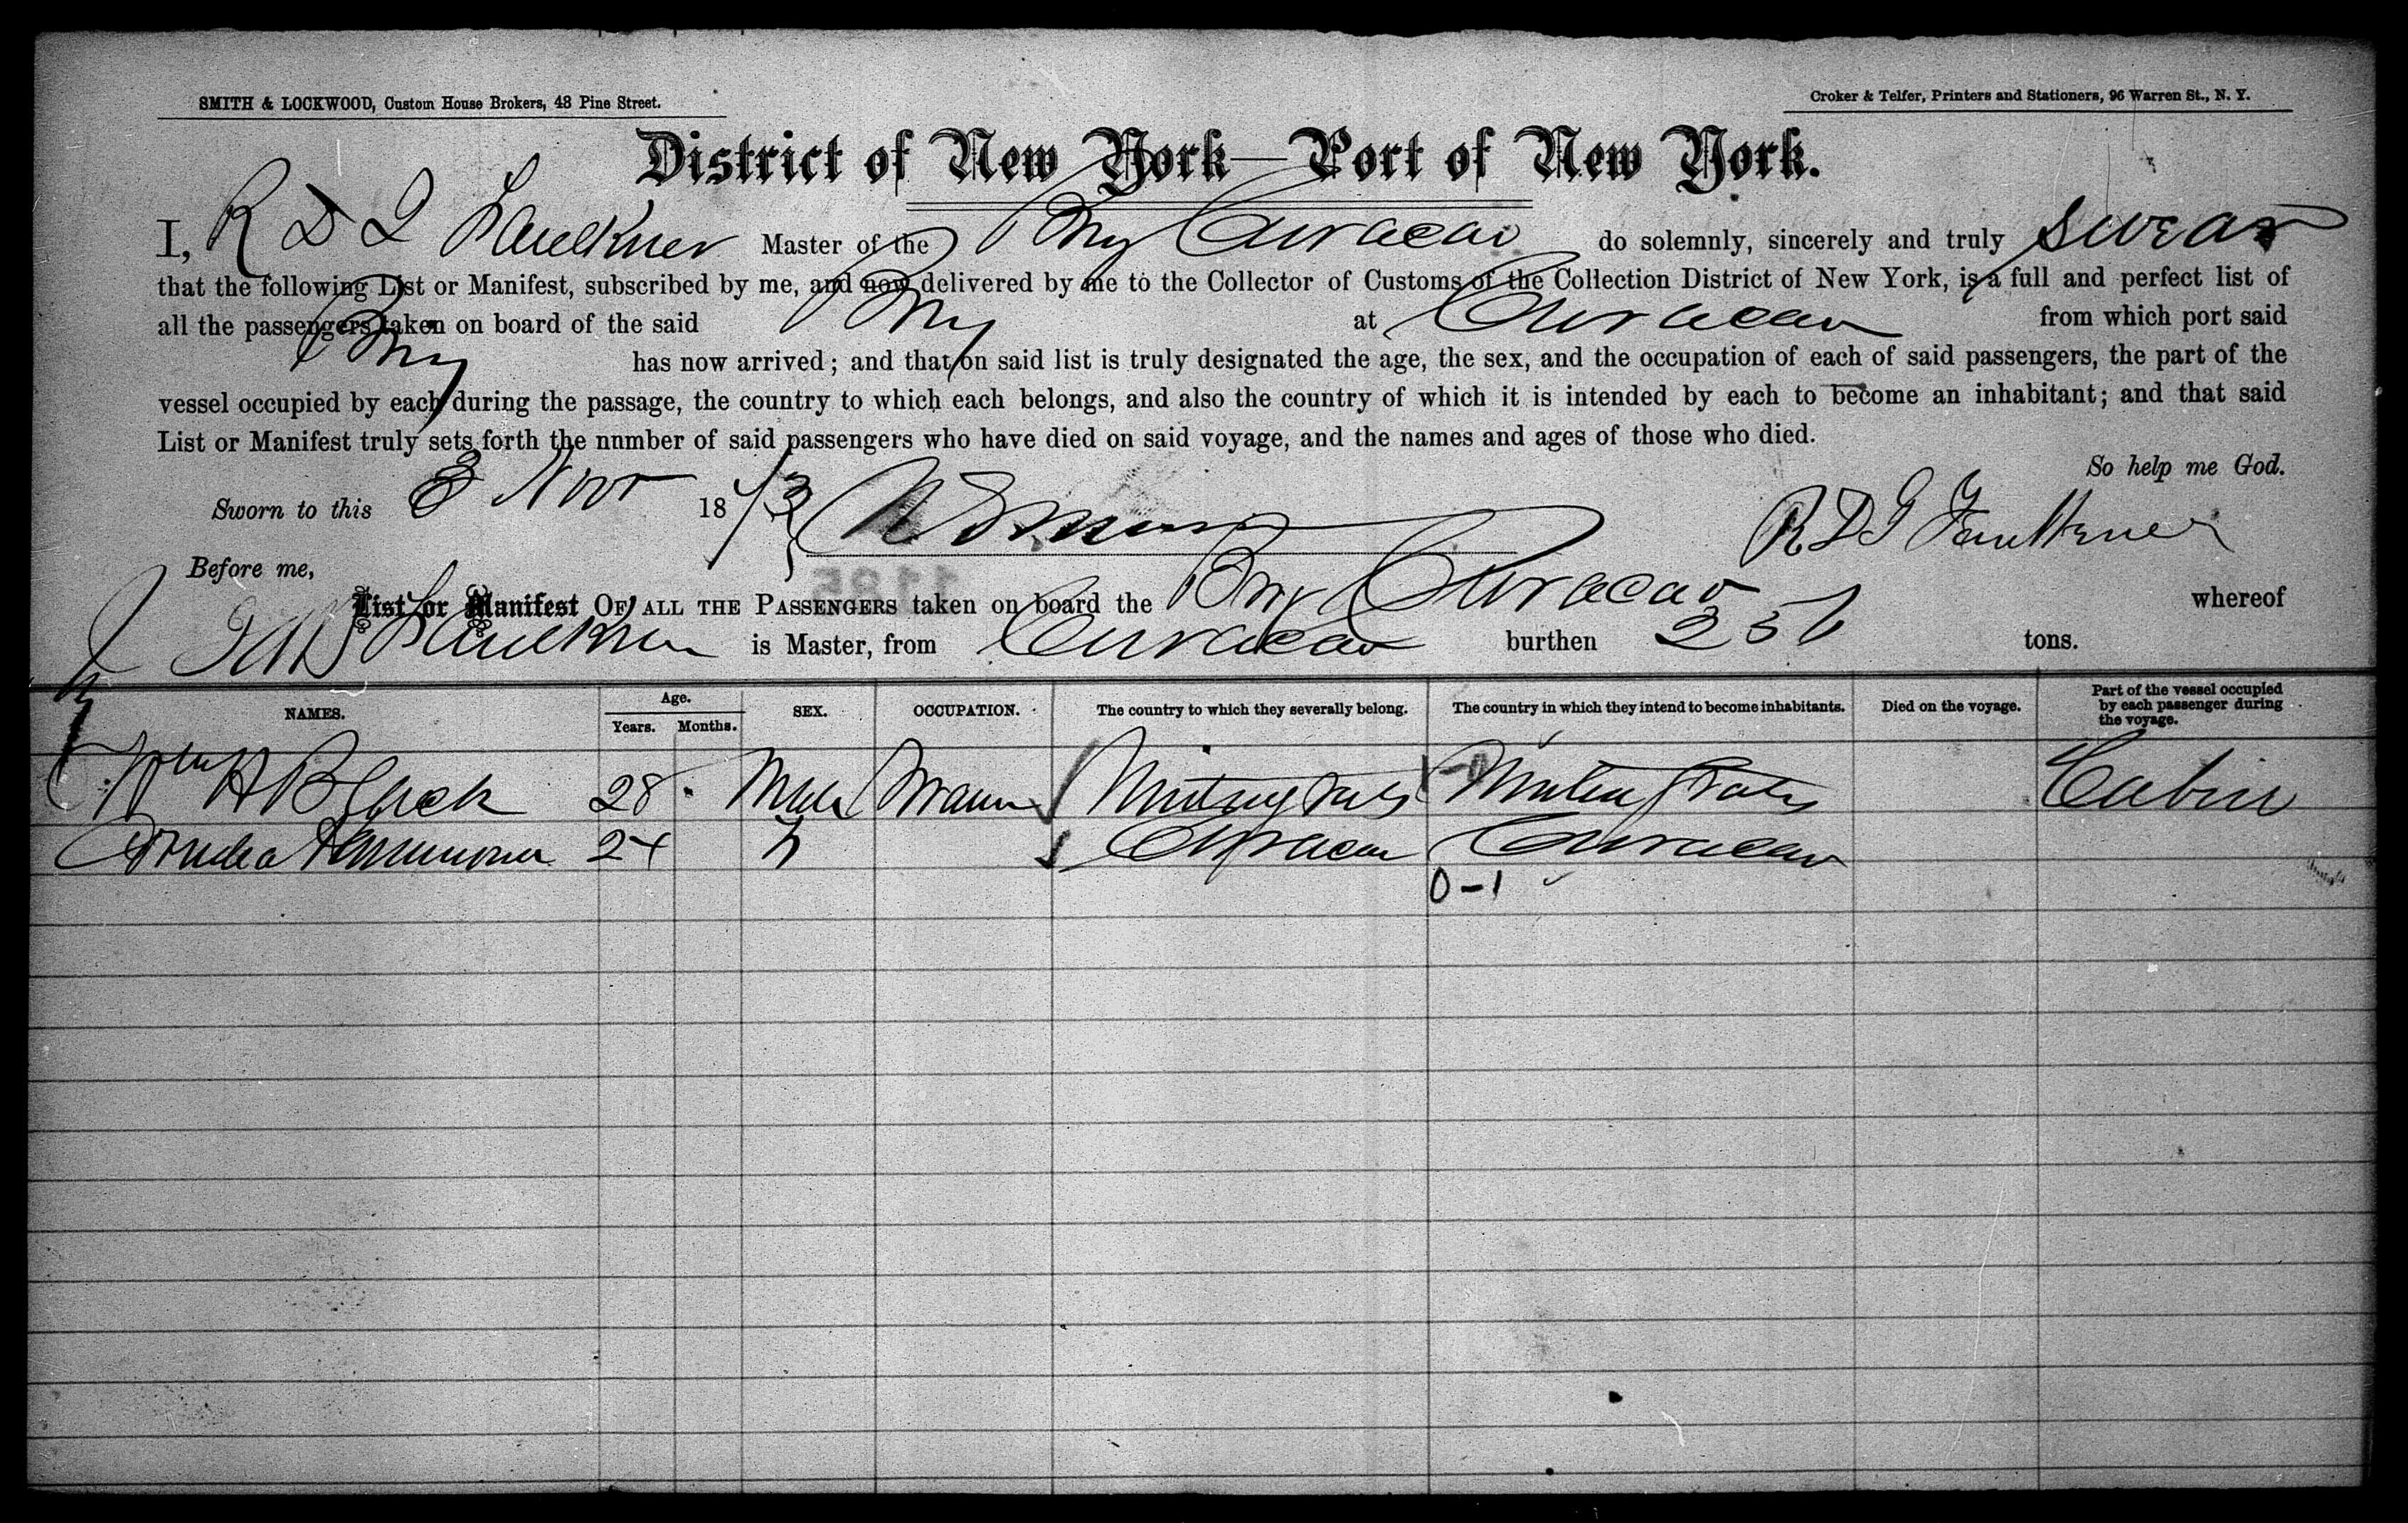 SMITH & LOCKWOOD, Custom House Brokers, 48 Pine Street.
Croker & Telfer, Printers and Stationers, 96 Warren St., N. Y.
District of New York—Port of New York.
I, R D G Faulkner Master of the Brig Curacao do solemnly, sincerely and truly swear
that the following List or Manifest, subscribed by me, and now delivered by me to the Collector of Customs of the Collection District of New York, is a full and perfect list of
all the passengers taken on board of the said Brig at Curacao from which port said
Brig has now arrived; and that on said list is truly designated the age, the sex, and the occupation of each of said passengers, the part of the
vessel occupied by each during the passage, the country to which each belongs, and also the country of which it is intended by each to become an inhabitant; and that said
List or Manifest truly sets forth the nnmber of said passengers who have died on said voyage, and the names and ages of those who died.
So help me God.
Sworn to this 3 Nov 1873
R D G Faulkner
Before me,
1185
List or Manifest OF ALL THE PASSENGERS taken on board the Brig Curacao whereof
Faulkner is Master, from Curacao burthen tons.
NAMES. Age. Years. Months. SEX. OCCUPATION. The country to which they severally belong. The country in which they intend to become inhabitants. Died on the voyage. Part of the vessel occupied by each passenger during the voyage.
Wm H Black 28 Male United States United States Cabin
24 Curacao Curacao
0-1